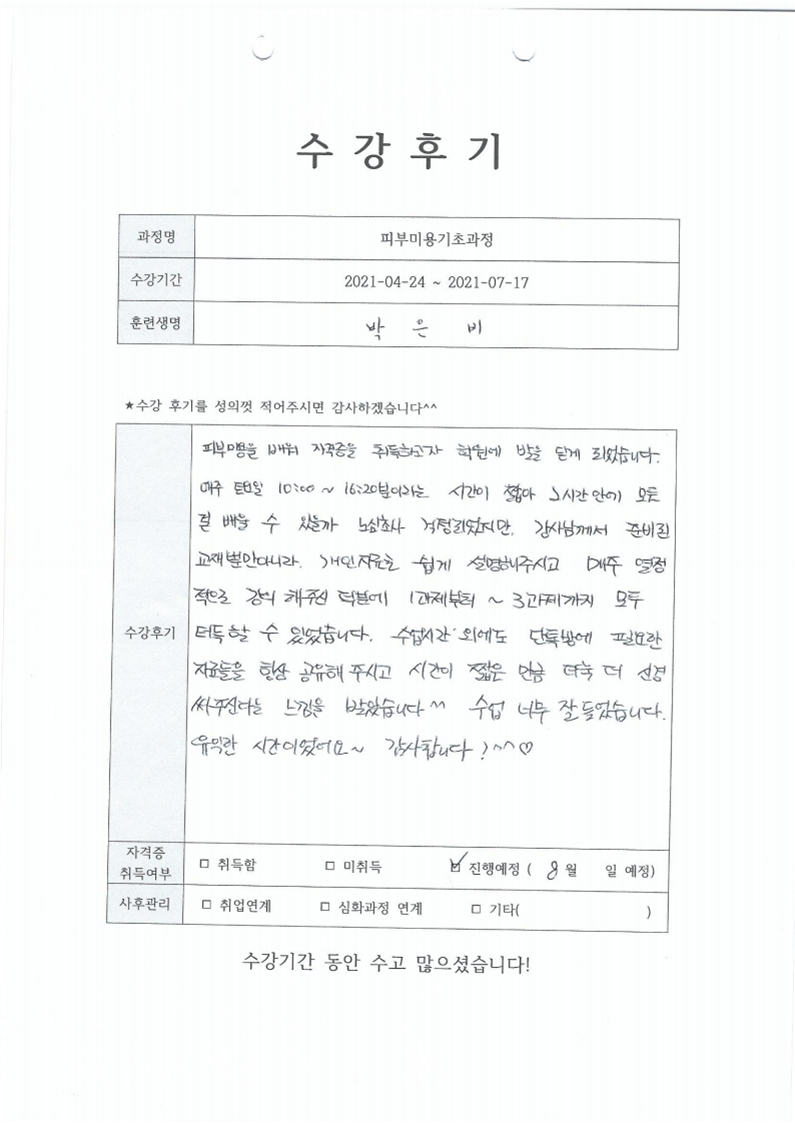 수 강 후 기
과정명 피부미용기초과정
수강기간 2021-04-24 ~ 2021-07-17
훈련생명 박 은 비
★수강 후기를 성의껏 적어주시면 감사하겠습니다^^
수강후기
피부미용을 배워 자격증을 취득하고자 학원에 발을 딛게 되었습니다.
매주 토요일 10:00 ~ 16:20분이라는 시간이 짧아 그시간안에 모든
걸 배울 수 있을까 노심초사 걱정되었지만, 강사님께서 준비된
교재뿐만아니라, 개인자료로 쉽게 설명해주시고 매주 열정
적으로 강의 해주신 덕분에 1과제부터 ~ 3과제까지 모두
터득할 수 있었습니다. 수업시간 외에도 단톡방에 필요한
자료들을 항상 공유해 주시고 시간이 짧은 만큼 더욱 더 신경
써주신다는 느낌을 받았습니다^^ 수업 너무 잘 들었습니다.
유익한 시간이었어요~ 감사합니다!^^♡
자격증
취득여부 □ 취득함 □ 미취득 ☑ 진행예정 ( 8월 일 예정)
사후관리 □ 취업연계 □ 심화과정 연계 □ 기타( )
수강기간 동안 수고 많으셨습니다!